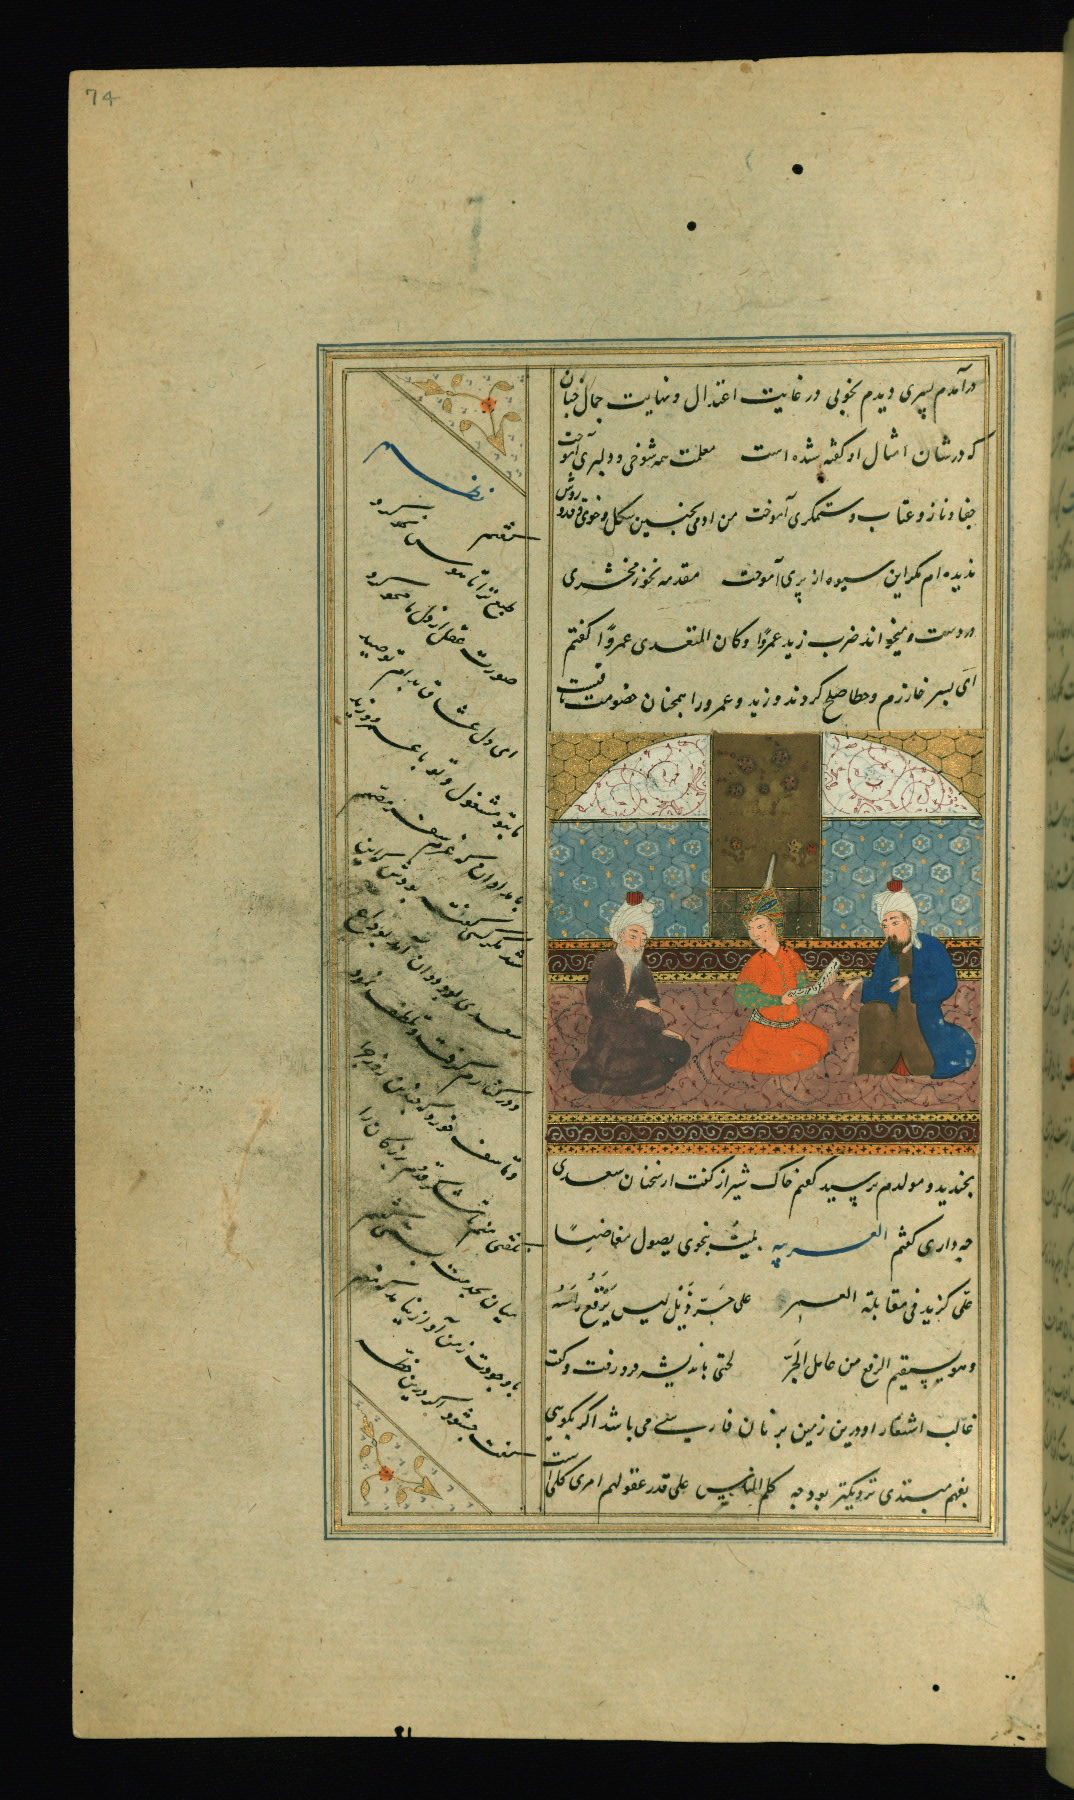 74
درآمدم پسری دیدم بخوبی در غایت اعتدال و نهایت جمال چنان
که در شان امثال او گفته شده است معلمت همه شوخی و دلبری آموخت
جفا و ناز و عتاب و ستمگری آموخت من ادمی بچنین شکل و خوی و قد و روش
ندیده ام مگر این شیوه از پری آموخت مقدمه نحو زمخشری
در دست و میخواند ضرب زید عمرًوا وکان المتعدی عمرًوا گفتم
ای پسر خوارزم و خطا صلح کردند و زید و عمرو را همچنان خصومت باقیست
بخندید و مولدم پرسید گفتم خاک شیراز گفت از سخنان سعدی
چه داری گفتم العربیه بلیت بنحوی یصول مغاضبًا
علی کزید فی مقابلة العمر علی جر ذیل لیس یرفع راسه
وهل یستقیم الرفع من عامل الجر لختی باندیشه فرو رفت و گفت
غالب اشعار او درین زمین بزبان فارسی می باشد اگر بگویی
بفهم مبتدی نزدیکتر بود چه کلم الناس علی قدر عقولهم امری کلی است
نظم
گفتم
طبع ترا تا هوس نحو کرد
صورت عقل از دل ما محو کرد
ای دل عشاق بدام تو صید
ما بتو مشغول و تو با عمرو و زید
بامدادان که عزم سفر مصمم
شد مگر کسی گفته بودش که این
سعدی بود دوان آمد بوداع
در کنارم گرفت و تلطف نمود
و تاسف خورد که چندین روز چرا
نگفتی منم تا شکر قدوم بزرگان را
میان بخدمت ببستمی گفتم
با وجودت ز من آواز نیامد که منم
گفت چشود اگر درین خطه